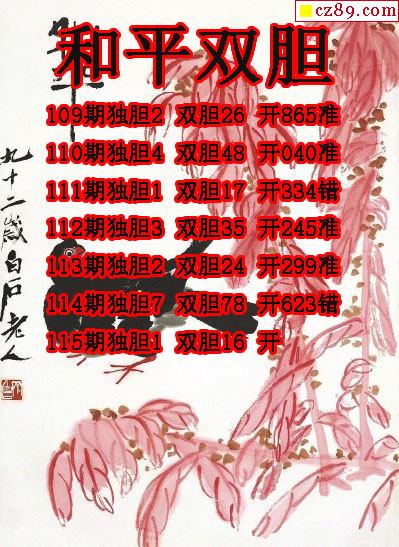 cz89.com
和平双胆
109期独胆2 双胆26 开865准
110期独胆4 双胆48 开040准
111期独胆1 双胆17 开334错
112期独胆3 双胆35 开245准
113期独胆2 双胆24 开299准
114期独胆7 双胆78 开623错
115期独胆1 双胆16 开
九十二歲白石老人